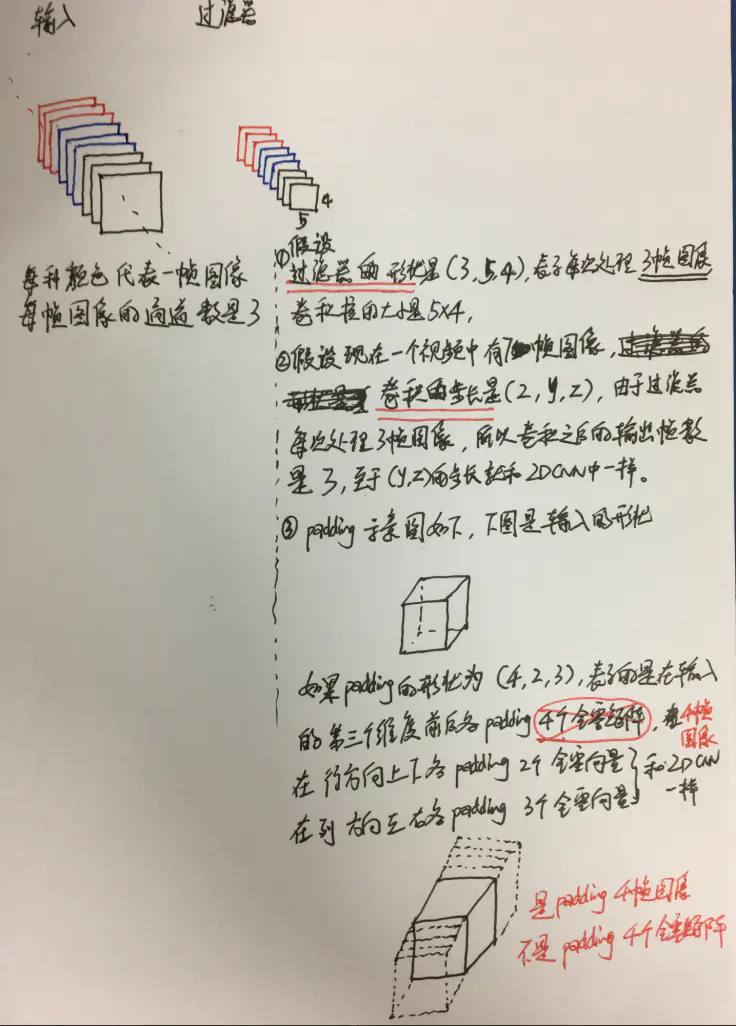 输入 过滤器
每种颜色代表一帧图像
每帧图像的通道数是3
4
5
①假设
过滤器的形状是(3,5,4),表示每次处理3帧图像
卷积核的大小是5X4,
②假设现在一个视频中有7帧图像,
卷积的步长是(2,y,z),由于过滤器
每次处理3帧图像,所以卷积之后的输出帧数
是3,至于(y,z)的步长就和2DCNN中一样。
③padding示意图如下,下图是输入的形状
如果padding的形状为(4,2,3),表示的是在输入
的第三个维度前后各padding 4个全零矩阵, 4帧
图像
在行方向上下各padding 2个全零向量 和2DCNN
在列方向左右各padding 3个全零向量 一样
是padding 4帧图像
不是padding 4个全零矩阵